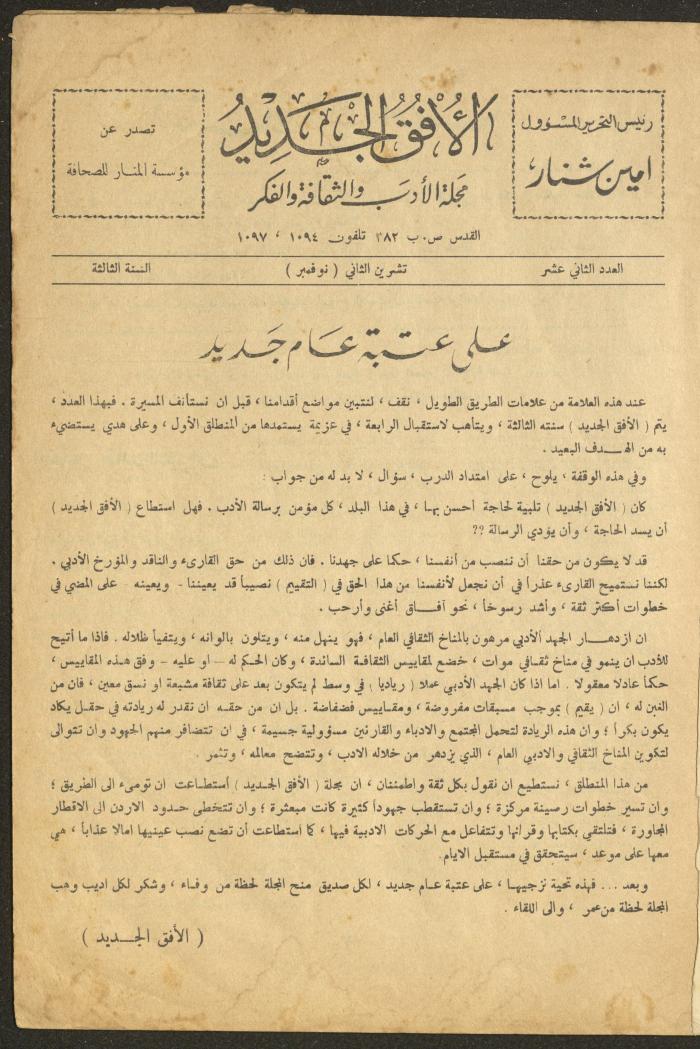 رئيس التحرير المسؤول
امين شنار
الأفق الجديد
مجلة الأدب والثقافة والفكر
القدس ص.ب ٣٨٢ تلفون ١٠٩٤ ، ١٠٩٧
تصدر عن
مؤسسة المنار للصحافة
العدد الثاني عشر
تشرين الثاني ( نوفمبر )
السنة الثالثة
على عتبة عام جديد
عند هذه العلامة من علامات الطريق الطويل ، نقف ، لنتبين مواضع أقدامنا ، قبل ان نستأنف المسيرة . فبهذا العدد ،
يتم ( الأفق الجديد ) سنته الثالثة ، ويتأهب لاستقبال الرابعة ، في عزيمة يستمدها من المنطلق الأول ، وعلى هدي يستضيء
به من الهدف البعيد .
وفي هذه الوقفة ، يلوح ، على امتداد الدرب ، سؤال ، لا بد له من جواب :
كان ( الأفق الجديد ) تلبية لحاجة أحسن بها ، في هذا البلد ، كل مؤمن برسالة الأدب . فهل استطاع ( الأفق الجديد )
أن يسد الحاجة ، وأن يؤدي الرسالة ؟؟
قد لا يكون من حقنا أن ننصب من أنفسنا ، حكما على جهدنا . فان ذلك من حق القارىء والناقد والمؤرخ الأدبي .
لكننا نستميح القارىء عذراً في أن نجعل لأنفسنا من هذا الحق في ( التقييم ) نصيباً قد يعيننا - ويعينه - على المضي في
خطوات أكثر ثقة ، وأشد رسوخاً ، نحو آفاق أغنى وأرحب .
ان ازدهار الجهد الأدبي مرهون بالمناخ الثقافي العام ، فهو ينهل منه ، ويتلون بالوانه ، ويتفيأ ظلاله . فاذا ما أتيح
للأدب ان ينمو في مناخ ثقافي موات ، خضع لمقاييس الثقافة السائدة ، وكان الحكم له - او عليه - وفق هذه المقاييس ،
حكماً عادلا معقولا . اما اذا كان الجهد الأدبي عملا ( رياديا ) في وسط لم يتكون بعد على ثقافة مشبعة او نسق معين ، فان من
الغبن له ، ان ( يقيم ) بموجب مسبقات مفروضة ، ومقاييس فضفاضة . بل ان من حقه ان نقدر له ريادته في حقل يكاد
يكون بكراً ؛ وان هذه الريادة لتحمل المجتمع والادباء والقارئين مسؤولية جسيمة ، في ان تتضافر منهم الجهود وان تتوالى
لتكوين المناخ الثقافي والادبي العام ، الذي يزدهر من خلاله الادب ، وتتضح معالمه ، وتثمر .
من هذا المنطلق ، نستطيع ان نقول بكل ثقة واطمئنان ، ان مجلة ( الأفق الجديد ) أستطاعت ان تومىء الى الطريق ؛
وان تسير خطوات رصينة مركزة ؛ وان تستقطب جهوداً كثيرة كانت مبعثرة ؛ وان تتخطى حدود الاردن الى الاقطار
المجاورة ، فتلتقي بكتابها وقرائها وتتفاعل مع الحركات الادبية فيها ، كما استطاعت أن تضع نصب عينيها امالا عذاباً ، هي
معها على موعد ، سيتحقق في مستقبل الايام.
وبعد ... فهذه تحية نزجيها ، على عتبة عام جديد ، لكل صديق منح المجلة لحظة من وفاء ، وشكر لكل اديب وهب
المجلة لحظة من عمر ، والى اللقاء .
( الأفق الجديد )